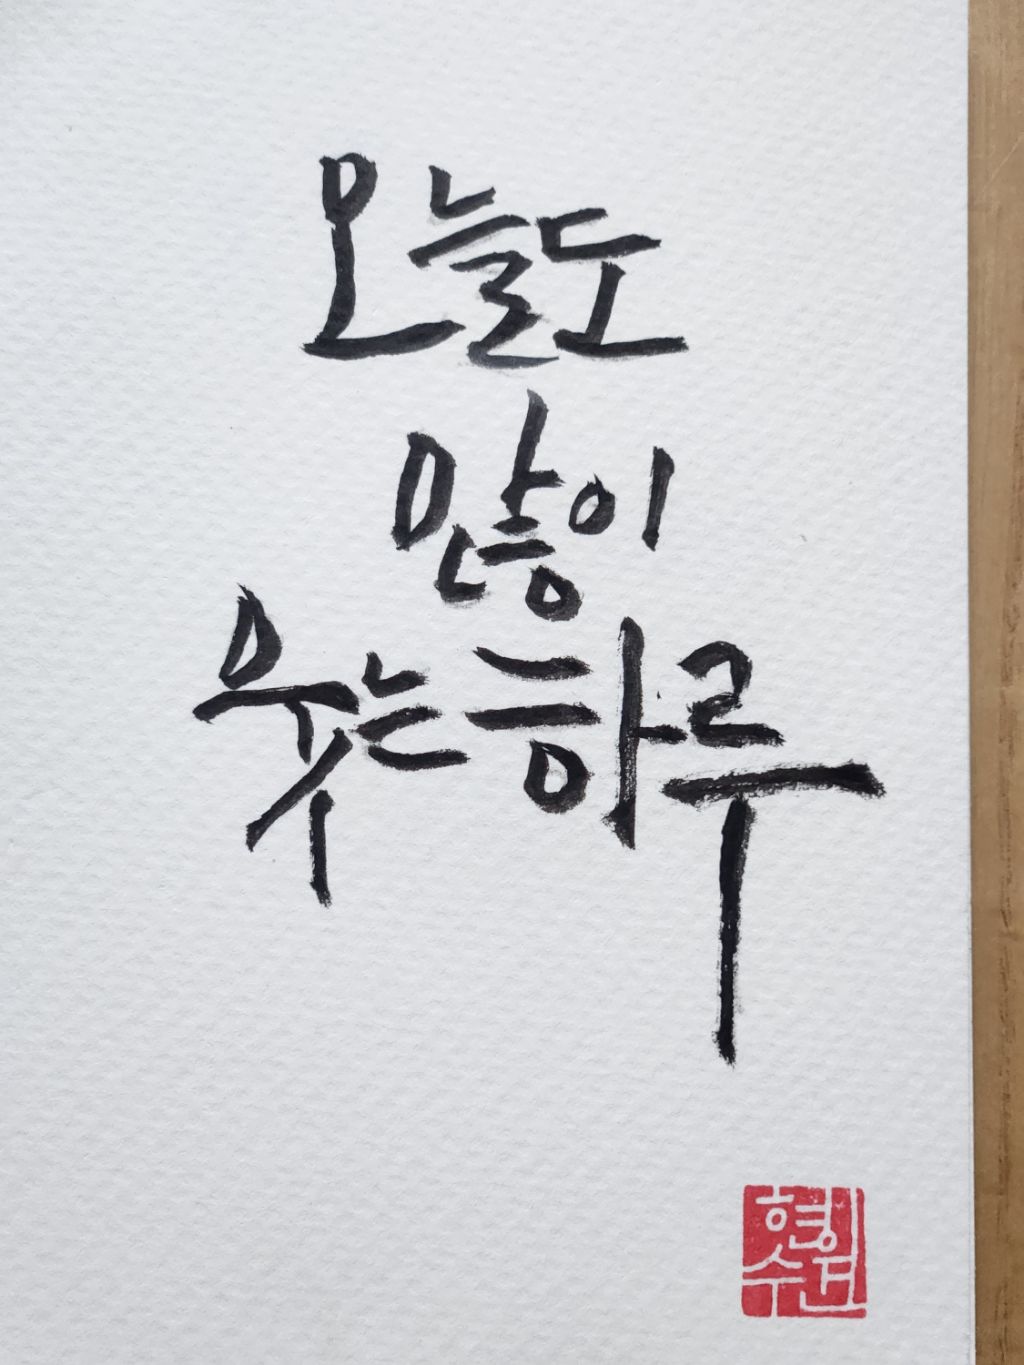 오늘도
많이
웃는하루